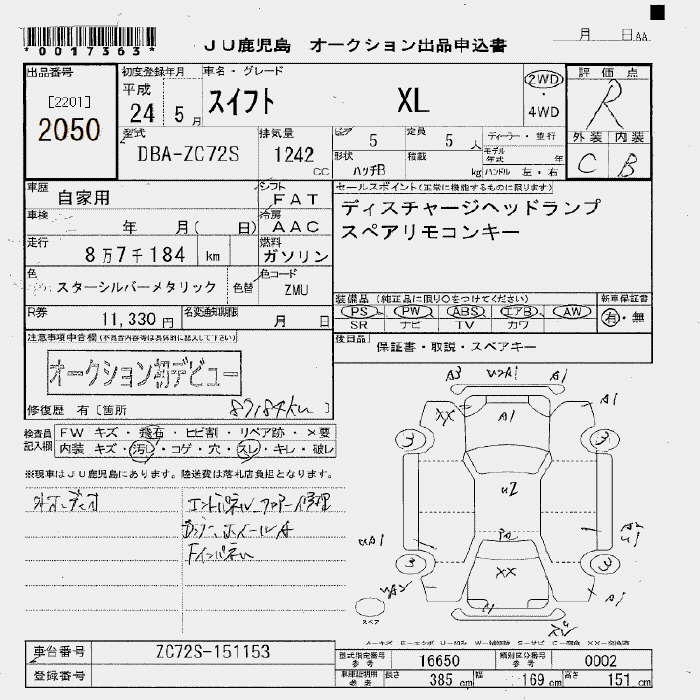 *0017363*
JU鹿児島 オークション出品申込書
月 日AA
出品番号 初度登録年月 車名・グレード 評価点
[2201]
2050
平成
24 5月 スイフト XL
2WD ・ 4WD
R
外装 内装
C B
型式 DBA-ZC72S 排気量 1242 cc
ドア 5 定員 5 人 ディーラー・並行
形状 ハッチB 積載 kg モデル年式 年
ハンドル 左・右
車歴 自家用 シフト FAT
車検 年 月( 日) 冷房 AAC
走行 8万7千184 km 燃料 ガソリン
色 スターシルバーメタリック 色替 色コード ZMU
R券 11,330円 名変通知期限 月 日
セールスポイント(正常に機能するものに限ります)
ディスチャージヘッドランプ
スペアリモコンキー
装備品(純正品に限り○をつけてください) 新車保証書
PS PW ABS エアB AW 有・無
SR ナビ TV カワ
後日品 保証書・取説・スペアキー
注意事項申告欄(不具合内容等は具体的に記入して下さい)
オークション初デビュー
修復歴 有[箇所 87184km ]
検査員記入欄 FW キズ・飛石・ヒビ割・リペア跡・×要
内装 キズ・汚レ・コゲ・穴・スレ・キレ・破レ
※現車はJU鹿児島にあります。陸送費は落札店負担となります。
A3 A1 A1
XX A1
3 3
U2
A1
XX
3 3
A1
スペア
車台番号 ZC72S-151153
登録番号
型式指定番号 参考 16650 類別区分番号 参考 0002
車庫証明用 参考 長さ 385 cm 幅 169 cm 高さ 151 cm